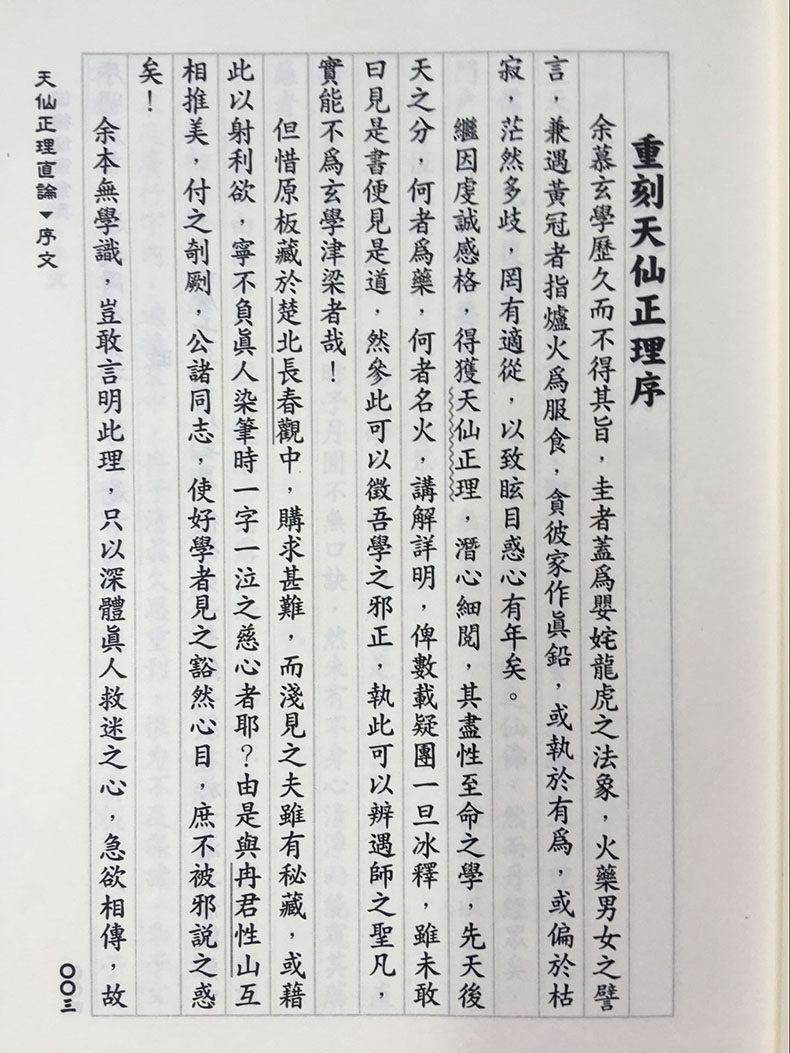 重刻天仙正理序
余慕玄學歷久而不得其旨，圭者蓋爲嬰姹龍虎之法象，火藥男女之譬
言，兼遇黃冠者指爐火爲服食，貪彼家作眞鉛，或執於有爲，或偏於枯
寂，茫然多歧，罔有適從，以致眩目惑心有年矣。
繼因虔誠感格，得獲天仙正理，潛心細閱，其盡性至命之學，先天後
天之分，何者爲藥，何者名火，講解詳明，俾數載疑團一旦冰釋，雖未敢
曰見是書便見是道，然參此可以徵吾學之邪正，執此可以辨遇師之聖凡，
實能不爲玄學津梁者哉！
但惜原板藏於楚北長春觀中，購求甚難，而淺見之夫雖有秘藏，或藉
此以射利欲，寧不負眞人染筆時一字一泣之慈心者耶？由是與冉君性山互
相推美，付之剞劂，公諸同志，使好學者見之豁然心目，庶不被邪說之惑
矣！
余本無學識，豈敢言明此理，只以深體眞人救迷之心，急欲相傳，故
天仙正理直論▼序文
〇〇三